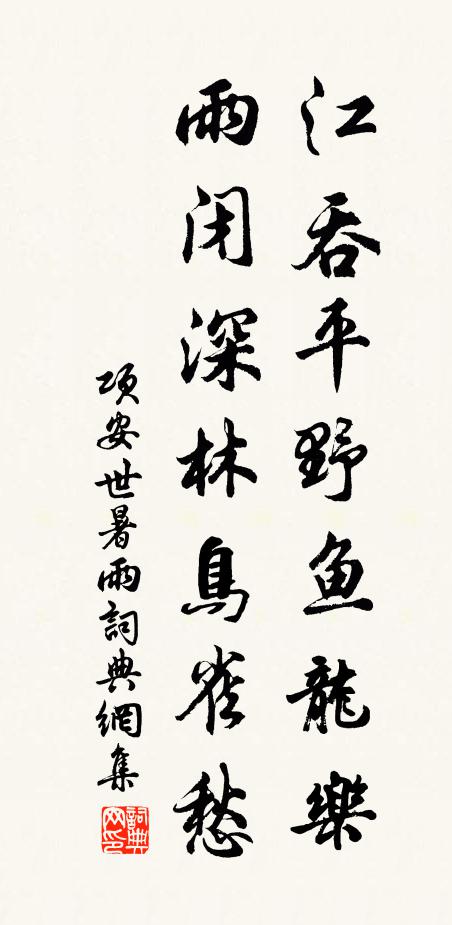 江吞平野鱼龍樂
雨闭深林鳥雀愁
項安世暑雨詞典網集
詞典网印